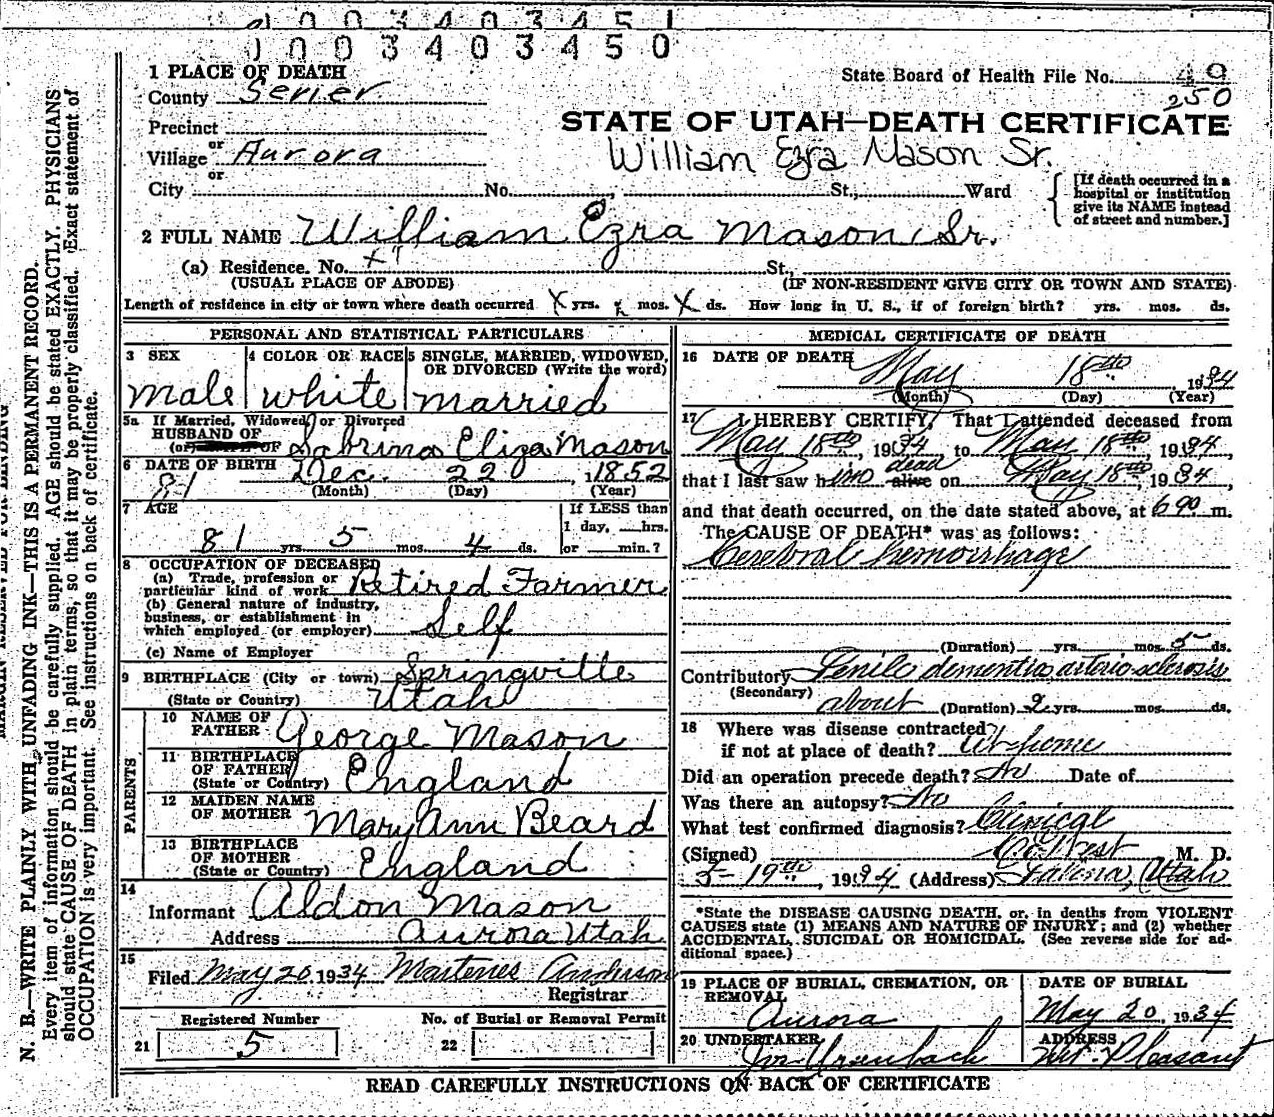 1 0 0 3 4 0 3 4 5 1
1 0 0 3 4 0 3 4 5 0
1 PLACE OF DEATH
State Board of Health File No. 49
County Serier
250
Precinct
STATE OF UTAH—DEATH CERTIFICATE
or
Village Aurora
William Ezra Mason Sr.
or
City No. , St., Ward
[If death occurred in a
hospital or institution
give its NAME instead
of street and number.]
2 FULL NAME William Ezra Mason, Sr.
(a) Residence. No. St.,
(USUAL PLACE OF ABODE) (IF NON-RESIDENT GIVE CITY OR TOWN AND STATE)
Length of residence in city or town where death occurred X yrs. X mos. X ds. How long in U. S., if of foreign birth? yrs. mos. ds.
PERSONAL AND STATISTICAL PARTICULARS
3 SEX
male
4 COLOR OR RACE
white
5 SINGLE, MARRIED, WIDOWED,
OR DIVORCED (Write the word)
married
5a If Married, Widowed or Divorced
HUSBAND OF
(or) WIFE OF Sabrina Eliza Mason
6 DATE OF BIRTH Dec. 22, 1852
81 (Month) (Day) (Year)
7 AGE
81 yrs. 5 mos. 4 ds.
If LESS than
1 day, hrs.
or min.?
8 OCCUPATION OF DECEASED
(a) Trade, profession or
particular kind of work Retired Farmer
(b) General nature of industry,
business, or establishment in
which employed (or employer) Self
(c) Name of Employer
9 BIRTHPLACE (City or town) Springville
(State or Country) Utah
PARENTS
10 NAME OF
FATHER George Mason
11 BIRTHPLACE
OF FATHER
(State or Country) England
12 MAIDEN NAME
OF MOTHER Mary Ann Beard
13 BIRTHPLACE
OF MOTHER
(State or Country) England
14
Informant Aldon Mason
Address Aurora Utah
15
Filed May 20, 1934 Martenes Anderson
Registrar
Registered Number
21 5
No. of Burial or Removal Permit
22
MEDICAL CERTIFICATE OF DEATH
16 DATE OF DEATH
May 18th, 1934
(Month) (Day) (Year)
17 I HEREBY CERTIFY, That I attended deceased from
May 18th, 1934, to May 18th, 1934
that I last saw him alive dead on May 18th, 1934,
and that death occurred, on the date stated above, at 6 90 m.
The CAUSE OF DEATH* was as follows:
Cerebral hemorrhage
(Duration) yrs. mos. 5 ds.
Contributory Senile dementia, arterio-sclerosis
(Secondary)
about (Duration) 2 yrs. mos. ds.
18 Where was disease contracted
if not at place of death? At home
Did an operation precede death? No Date of
Was there an autopsy? No
What test confirmed diagnosis? Clinical
(Signed) West M. D.
5-19th, 1934 (Address) Salina, Utah
*State the DISEASE CAUSING DEATH, or, in deaths from VIOLENT
CAUSES state (1) MEANS AND NATURE OF INJURY; and (2) whether
ACCIDENTAL, SUICIDAL OR HOMICIDAL. (See reverse side for ad-
ditional space.)
19 PLACE OF BURIAL, CREMATION, OR
REMOVAL
Aurora
DATE OF BURIAL
May 20, 1934
20 UNDERTAKER
Jos Ursenbach
ADDRESS
Mt. Pleasant
READ CAREFULLY INSTRUCTIONS ON BACK OF CERTIFICATE
MARGIN RESERVED FOR BINDING
N. B.—WRITE PLAINLY WITH UNFADING INK—THIS IS A PERMANENT RECORD.
Every item of information should be carefully supplied. AGE should be stated EXACTLY. PHYSICIANS
should state CAUSE OF DEATH in plain terms, so that it may be properly classified. Exact statement of
OCCUPATION is very important. See instructions on back of certificate.